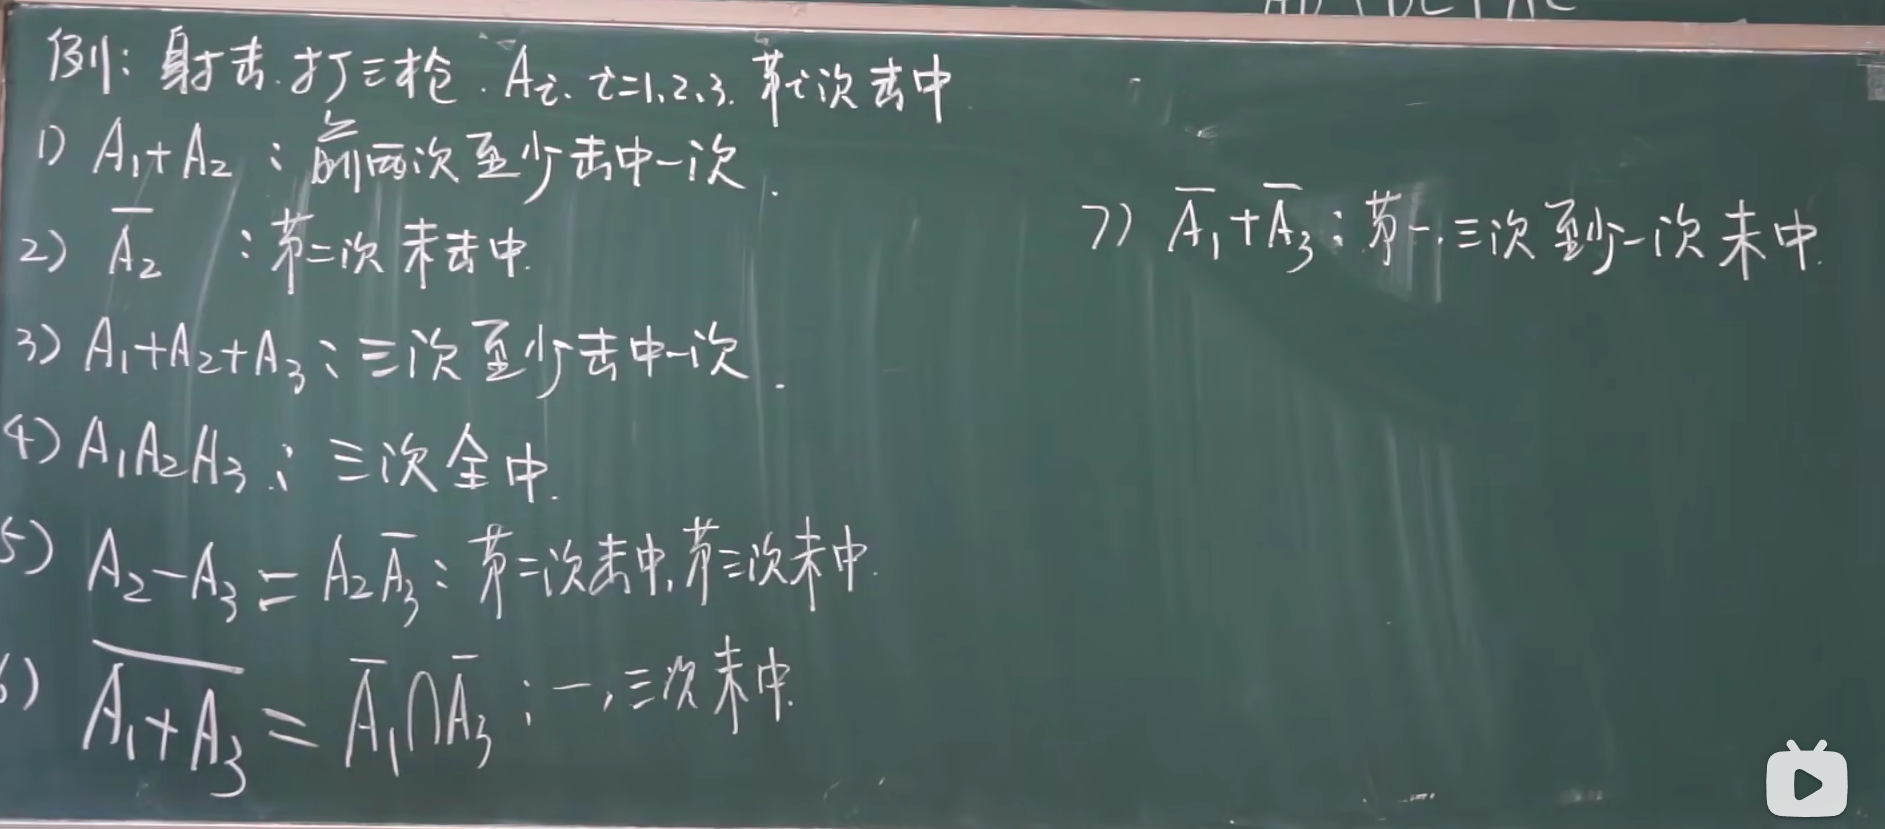 例: 射击. 打三枪. Aᵢ. i=1.2.3. 第i次击中
1) A₁+A₂ : 前两次至少击中一次.
2) A̅₂ : 第二次未击中.
3) A₁+A₂+A₃ : 三次至少击中一次.
4) A₁A₂A₃ : 三次全中.
5) A₂-A₃ = A₂A̅₃ : 第二次击中, 第三次未中.
6) \overline{A₁+A₃} = A̅₁∩A̅₃ : 一,三次未中.
7) A̅₁+A̅₃ : 第一,三次至少一次未中.